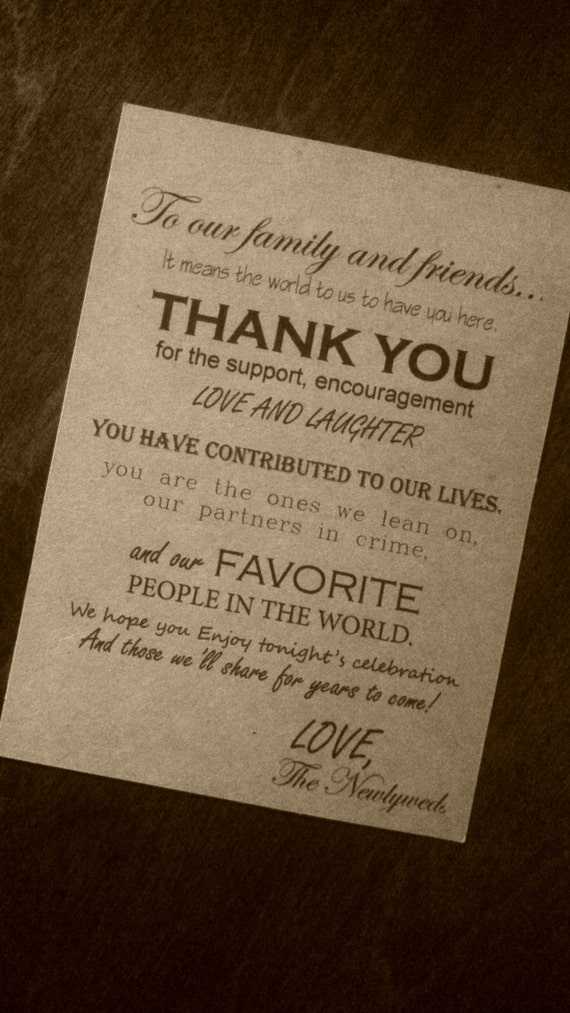 To our family and friends...
It means the world to us to have you here.
THANK YOU
for the support, encouragement
LOVE AND LAUGHTER
YOU HAVE CONTRIBUTED TO OUR LIVES.
you are the ones we lean on,
our partners in crime,
and our FAVORITE
PEOPLE IN THE WORLD.
We hope you Enjoy tonight's celebration
And those we'll share for years to come!
LOVE,
The Newlyweds